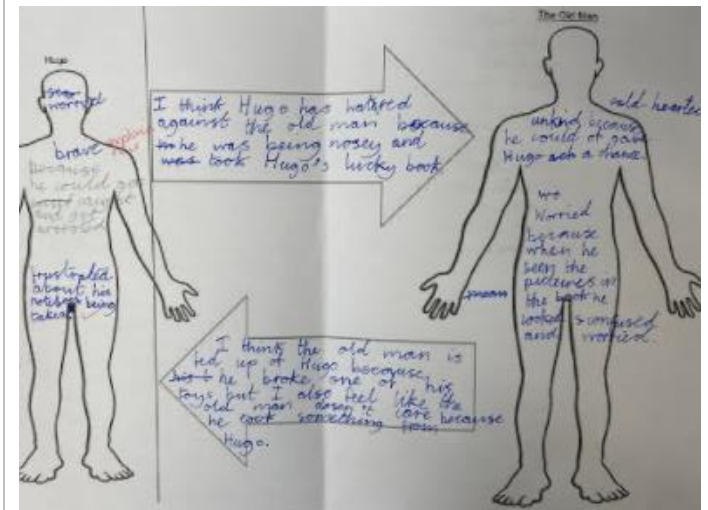 Hugo
worried
brave
because
he could get
caught
and get
arrested
frustrated
about his
notebook being
taken
I think Hugo has hatered
against the old man because
he was being nosey and
was took Hugo's lucky book
I think the old man is
fed up of Hugo because
he broke one of his
toys but I also feel like the
old man doesn't care because
he took something from
Hugo.
The Old Man
cold hearted
unkind because
he could of gave
Hugo a chance.
Worried
because
when he
seen the
pictures in
the book he
looked sconfused
and worried.
mean